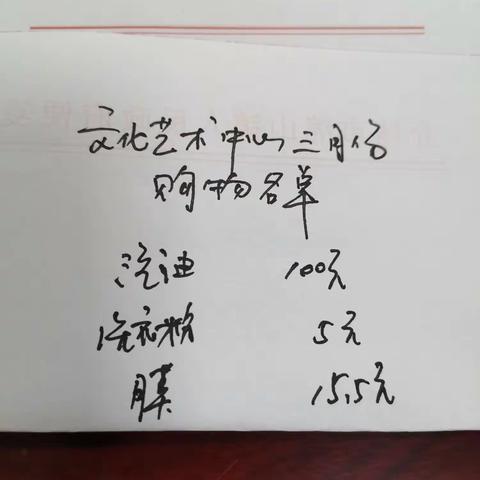 文化艺术中心三月份
购物名单
汽油 100元
洗衣粉 5元
膜 15.5元